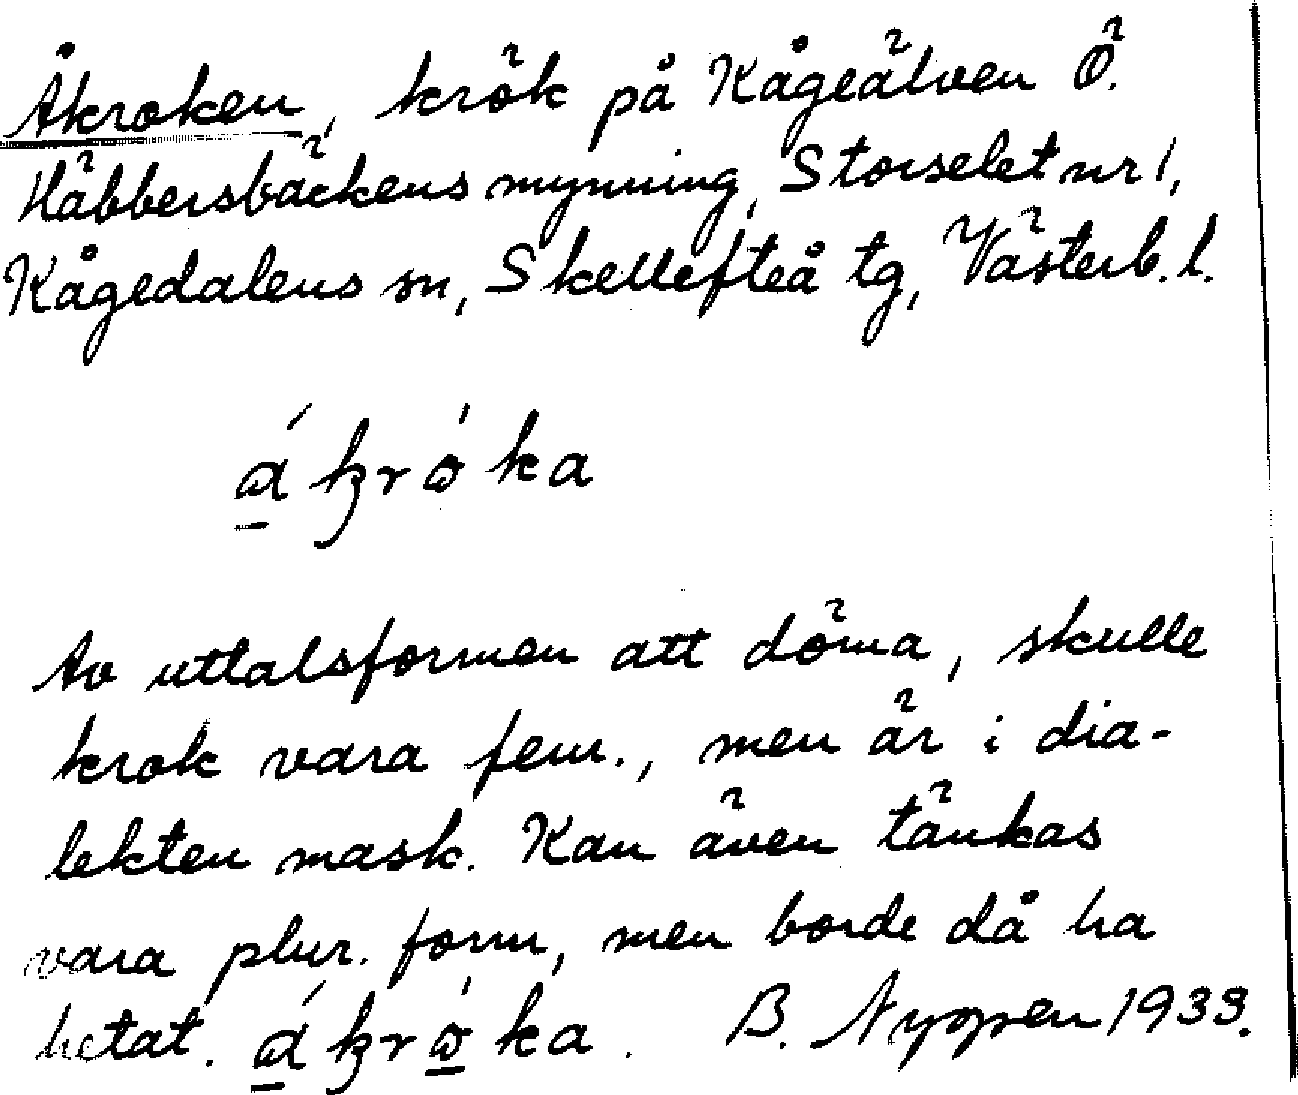 Åkroken, krök på Kågeälven Ö.
Häbbersbäckens mynning, Storselet nr 1,
Kågedalens sn, Skellefteå tg, Västerb. l.
Av uttalsformen att döma, skulle
krok vara fem., men är i dia-
lekten mask. Kan även tänkas
vara plur. form, men borde då ha
hetat. B. Nygren 1933.